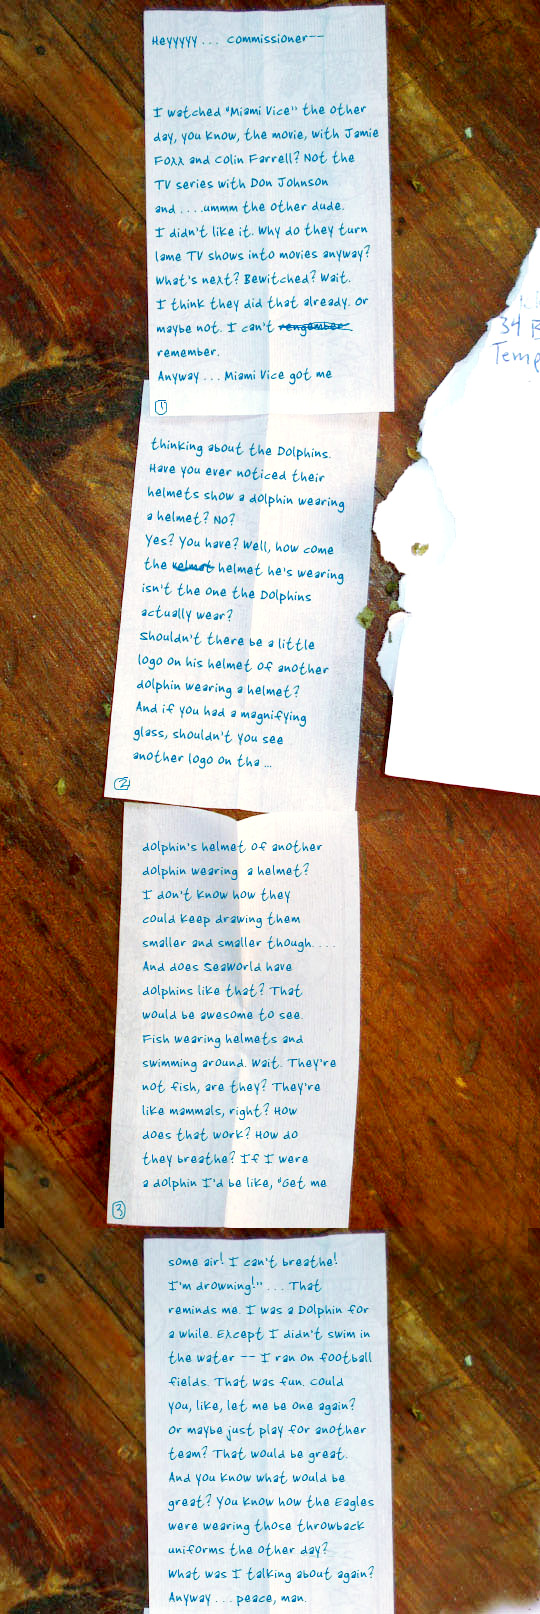 Heyyyyy... commissioner--
I watched "Miami Vice" the other
day, you know, the movie, with Jamie
Foxx and Colin Farrell? Not the
TV series with Don Johnson
and ....ummm the other dude.
I didn't like it. Why do they turn
lame TV shows into movies anyway?
What's next? Bewitched? Wait.
I think they did that already. Or
maybe not. I can't
remember.
Anyway... Miami Vice got me
1
thinking about the Dolphins.
Have you ever noticed their
helmets show a dolphin wearing
a helmet? No?
Yes? You have? Well, how come
the helmet he's wearing
isn't the one the Dolphins
actually wear?
Shouldn't there be a little
logo on his helmet of another
dolphin wearing a helmet?
And if you had a magnifying
glass, shouldn't you see
another logo on tha...
2
34
Temp
dolphin's helmet of another
dolphin wearing a helmet?
I don't know how they
could keep drawing them
smaller and smaller though....
And does SeaWorld have
dolphins like that? That
would be awesome to see.
Fish wearing helmets and
swimming around. Wait. They're
not fish, are they? They're
like mammals, right? How
does that work? How do
they breathe? If I were
a dolphin I'd be like, "Get me
3
some air! I can't breathe!
I'm drowning!".... That
reminds me. I was a Dolphin for
a while. Except I didn't swim in
the water -- I ran on football
fields. That was fun. Could
you, like, let me be one again?
Or maybe just play for another
team? That would be great.
And you know what would be
great? You know how the Eagles
were wearing those throwback
uniforms the other day?
What was I talking about again?
Anyway... peace, man.